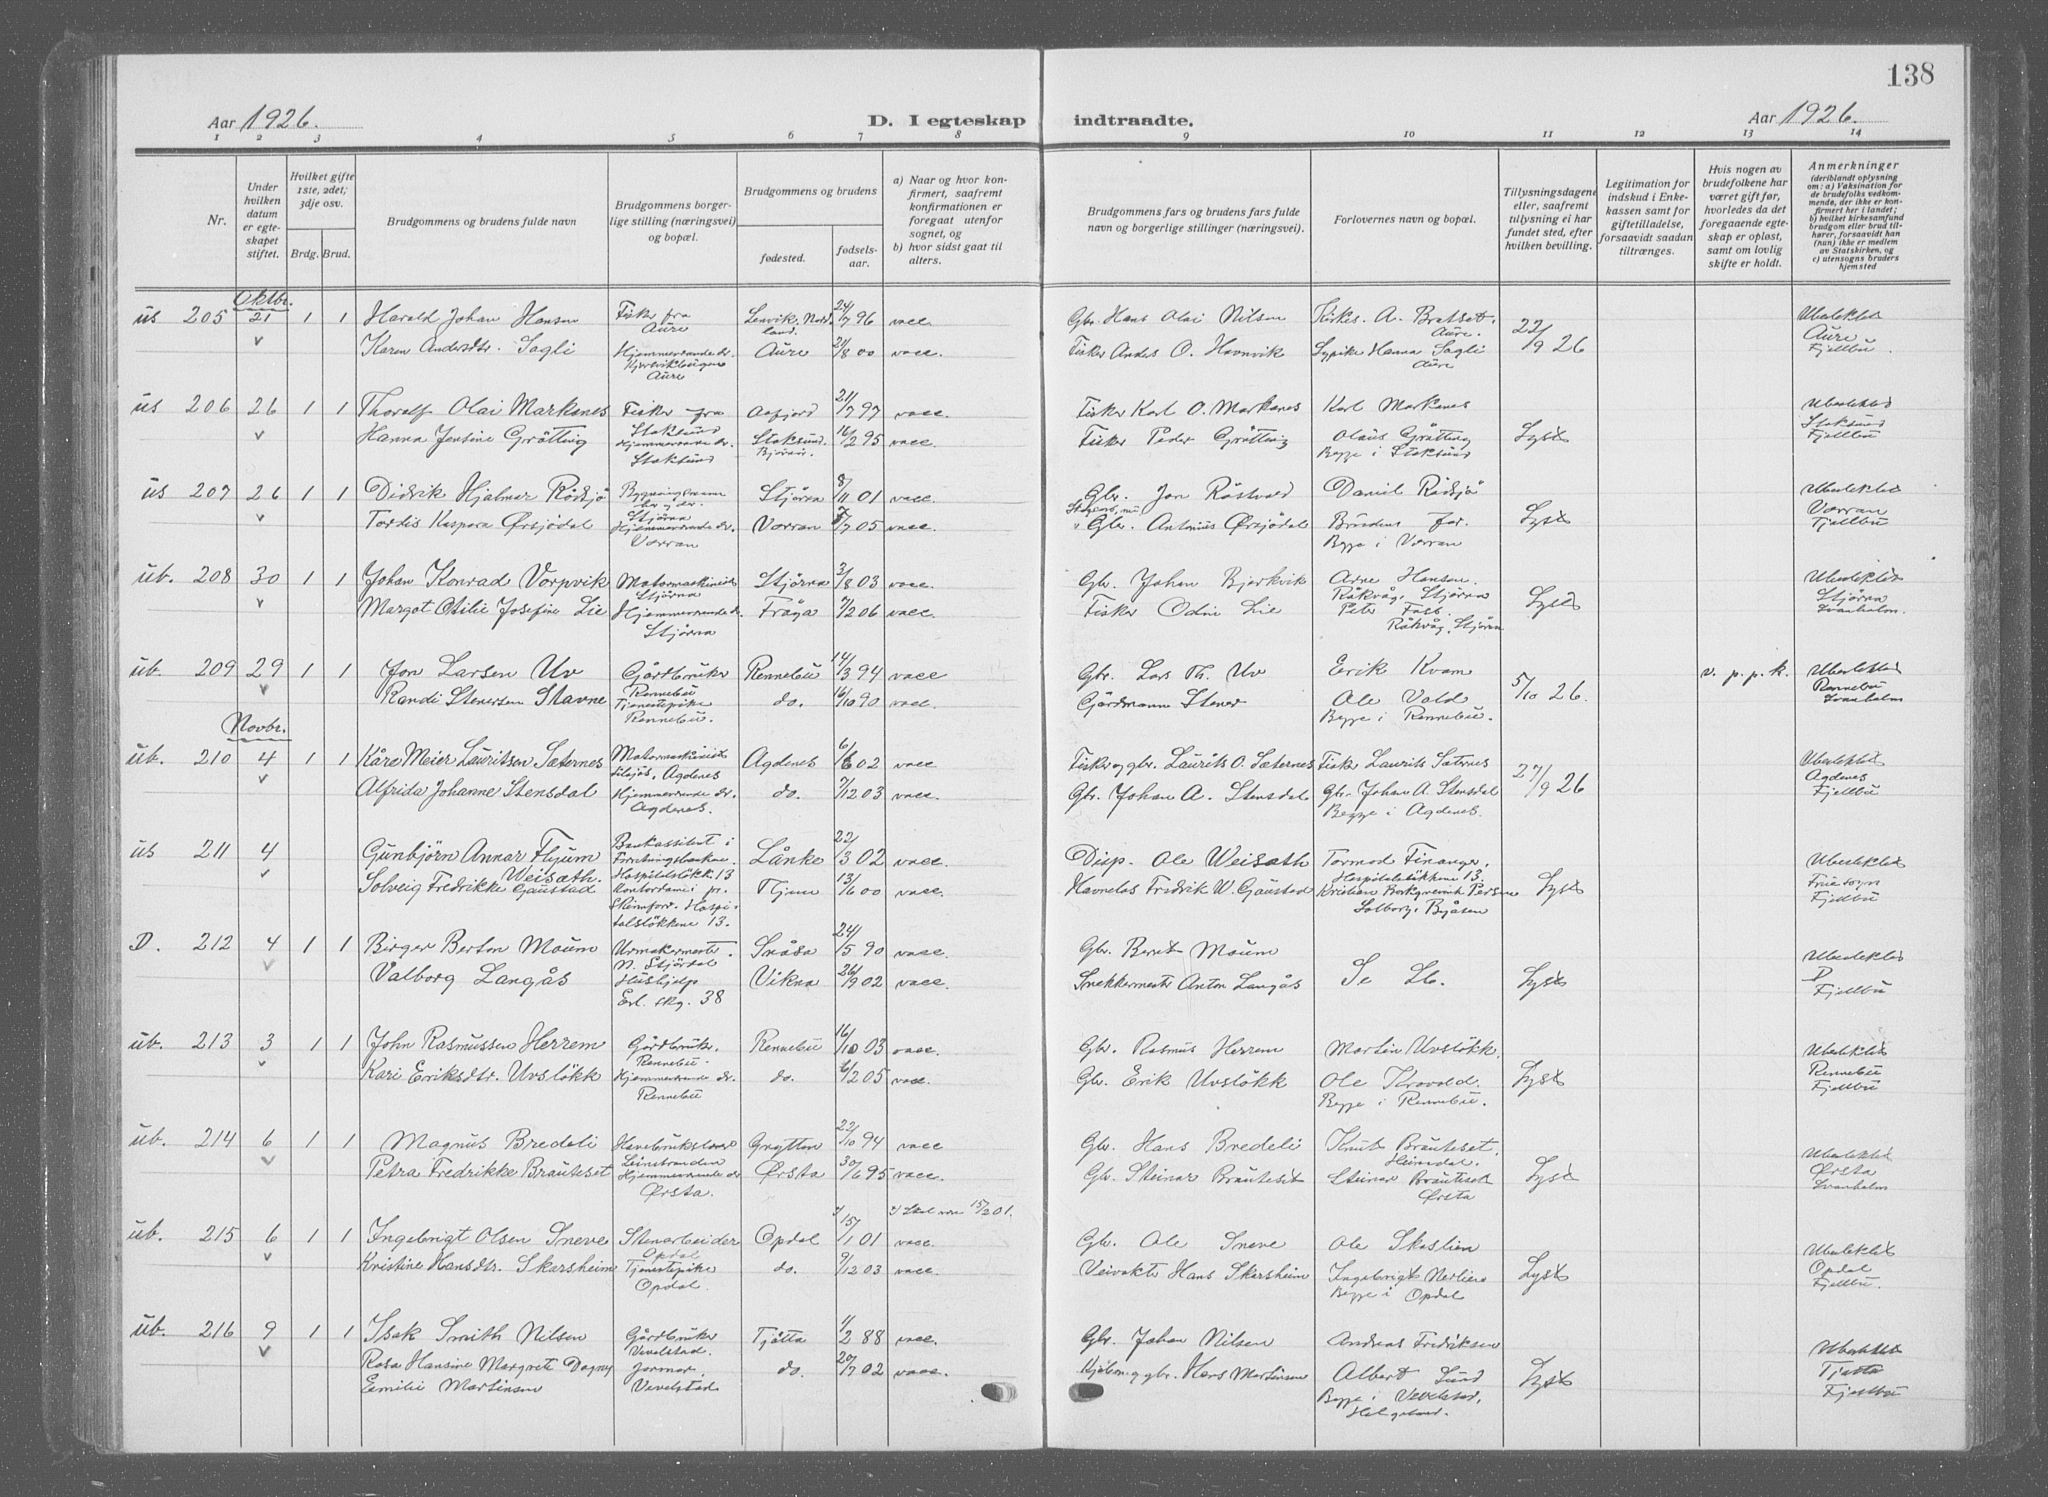 138
Aar 1926.
D. I egteskap indtraadte.
Aar 1926.
1 2 3 4 5 6 7 8 9 10 11 12 13 14
Nr.
Under hvilken datum er egteskapet stiftet.
Hvilket gifte 1ste, 2det; 3dje osv.
Brdg. Brud.
Brudgommens og brudens fulde navn
Brudgommens borgerlige stilling (næringsvei) og bopæl.
Brudgommens og brudens
fødested.
fødselsaar.
a) Naar og hvor konfirmert, saafremt konfirmationen er foregaat utenfor sognet, og
b) hvor sidst gaat til alters.
Brudgommens fars og brudens fars fulde navn og borgerlige stillinger (næringsvei).
Forlovernes navn og bopæl.
Tillysningsdagene eller, saafremt tillysning ei har fundet sted, efter hvilken bevilling.
Legitimation for indskud i Enkekassen samt for giftetilladelse, forsaavidt saadan tiltrænges.
Hvis nogen av brudefolkene har været gift før, hvorledes da det foregaaende egteskap er opløst, samt om lovlig skifte er holdt.
Anmerkninger
(deriblandt oplysning om: a) Vaksination for de brudefolks vedkommende, der ikke er konfirmert her i landet; b) hvilket kirkesamfund brudgom eller brud tilhører, forsaavidt han (hun) ikke er medlem av Statskirken, og c) utensogns bruders hjemsted
Oktbr.
us 205 21 1 1 Harald Johan Hansen Fisker fra Aure Lenvik, Nordland. 24/7 96 vacc. Gbr. Hans Olai Nilsen Kirkes. A. Bratset. Aure. 22/9 26 Ubeslektet
Karen Andersdtr. Sagli Hjemmeværende dr. Aure Aure 21/8 00 vacc. Fisker Anders O. Havnvik Sypike Hanna Sagli Aure Aure Fjellbu.
us 206 26 1 1 Thoralf Olai Markanes Fisker fra Stoksund Aafjord 21/7 97 vacc. Fisker Karl O. Markanes Karl Markanes Ubeslektet
Hanna Jensine Grøtting Hjemmeværende dr. Stoksund Stoksund. Bjørnør. 16/2 95 vacc. Fisker Peder Grøtting Olaus Grøtting Begge i Stoksund Lyst Stoksund Fjellbu
us 207 26 1 1 Didrik Hjalmar Rødsjø Stjørna Stjørna 8/11 01 vacc. Gbr. Jon Røstvold Daniel Rødsjø Ubeslektet
Tordis Kaspara Ørsjødal Hjemmeværende dr. Værran Værran 7/7 05 vacc. Gbr. Antonius Ørsjødal Brudens far. Begge i Værran Lyst Værran Fjellbu
ub. 208 30 1 1 Johan Konrad Vorpvik Motormaskinist Stjørna Stjørna 3/8 03 vacc. Gbr. Johan Bjørkvik Arne Hansen. Råkvåg, Stjørna Ubeslektet
Margot Otilie Josefine Lie Hjemmeværende dr. Stjørna Frøya 7/2 06 vacc. Fisker Odin Lie Peter Råkvåg, Stjørna Lyst Stjørna Svanholm.
ub. 209 29 1 1 Jon Larsen Uv Gårdbruker Rennebu Rennebu 14/3 94 vacc Gbr. Lars Th. Uv Erik Kvam 5/10 26. v. p. p. k. Ubeslektet
Randi Stenersen Stavne Tjenestepike Rennebu. do. 16/10 90 vacc. Gårdmann Stener Ole Vold Begge i Rennebu. Rennebu Svanholm
Novbr.
ub. 210 4 1 1 Kåre Meier Lauritsen Sæternes Motormaskinist Agdenes Agdenes 6/6 02 vacc Fisker og gbr. Laurits O. Sæternes Fisk. Laurits Sæternes 27/9 26 Ubeslektet
Alfrida Johanne Stensdal Hjemmeværende dr. Agdenes. do. 7/12 03 vacc. Gbr. Johan A. Stensdal Gbr. Johan A. Stensdal Begge i Agdenes Agdenes Fjellbu
us 211 4 Gunbjørn Annar Flyum Weisæth. Bankassistent i Forretningsbanken. Hospitalsløkk. 13 Lånke 22/3 02 vacc. Disp. Ole Weisæth Tormod Finanger. Hospitalsløkkene 13. Ubeslektet
Solveig Fredrikke Gaustad Kontordame Hospitalsløkkene 13. 13/6 00 vacc. Fredrik W. Gaustad Kristian Solborg, Byåsen Lyst Fruesogn Fjellbu
D. 212 4 1 1 Birger Berton Moum Urmakermester. N. Stjørdal Snåsa 24/5 90 vacc. Gbr. Bernt Moum Ubeslektet
Valborg Langås Hushjelp Erl. skg. 38 Vikna 26/9 02 vacc. Snekkermestr Anton Langås Se Lb. Lyst D Fjellbu
ub. 213 3 1 1 John Rasmussen Herrem Gårdbruk. Rennebu. Rennebu 16/10 03 vacc. Gbr. Rasmus Herrem Martin Uvsløkk. Ubeslektet
Kari Eriksdtr. Uvsløkk Hjemmeværende dr. Rennebu do. 6/2 05 vacc. Gbr. Erik Uvsløkk Ole Begge i Rennebu. Lyst Rennebu Fjellbu
ub. 214 6 1 1 Magnus Bredeli Havebrukslærer Leinstranden Grytten 22/10 94 vacc Gbr. Hans Bredeli Knut Brauteset. Heimdal. Ubeslektet
Petra Fredrikke Brauteset Hjemmeværende dr. Ørsta. Ørsta 30/6 95 vacc. Gbr. Steinar Brauteset Steinar Brauteset Ørsta Lyst Ørsta Svanholm
x) Skal være 15/2 01.
ub. 215 6 1 1 Ingebrigt Olsen Sneve Stenarbeider Opdal Opdal 15/1 01 vacc. Gbr. Ole Sneve Ole Skaslien Ubeslektet
Kristine Hansdtr. Skarsheim Tjenestepike Opdal do. 9/12 03 vacc. Veivokter Hans Skarsheim Ingebrigt Begge i Opdal Lyst Opdal Fjellbu.
ub. 216 9 1 1 Isak Smith Nilsen Gårdbruker Vevelstad. Tjøtta 4/2 88 vacc. Gbr. Johan Nilsen Andreas Fredriksen Ubeslektet
Rosa Hansine Margrete Dagny Emilie Martinsen Jormor. Vevelstad do. 20/7 02 vacc. gbr. Hans Martinsen Albert Lund Begge i Vevelstad, Helgeland. Lyst Tjøtta Fjellbu